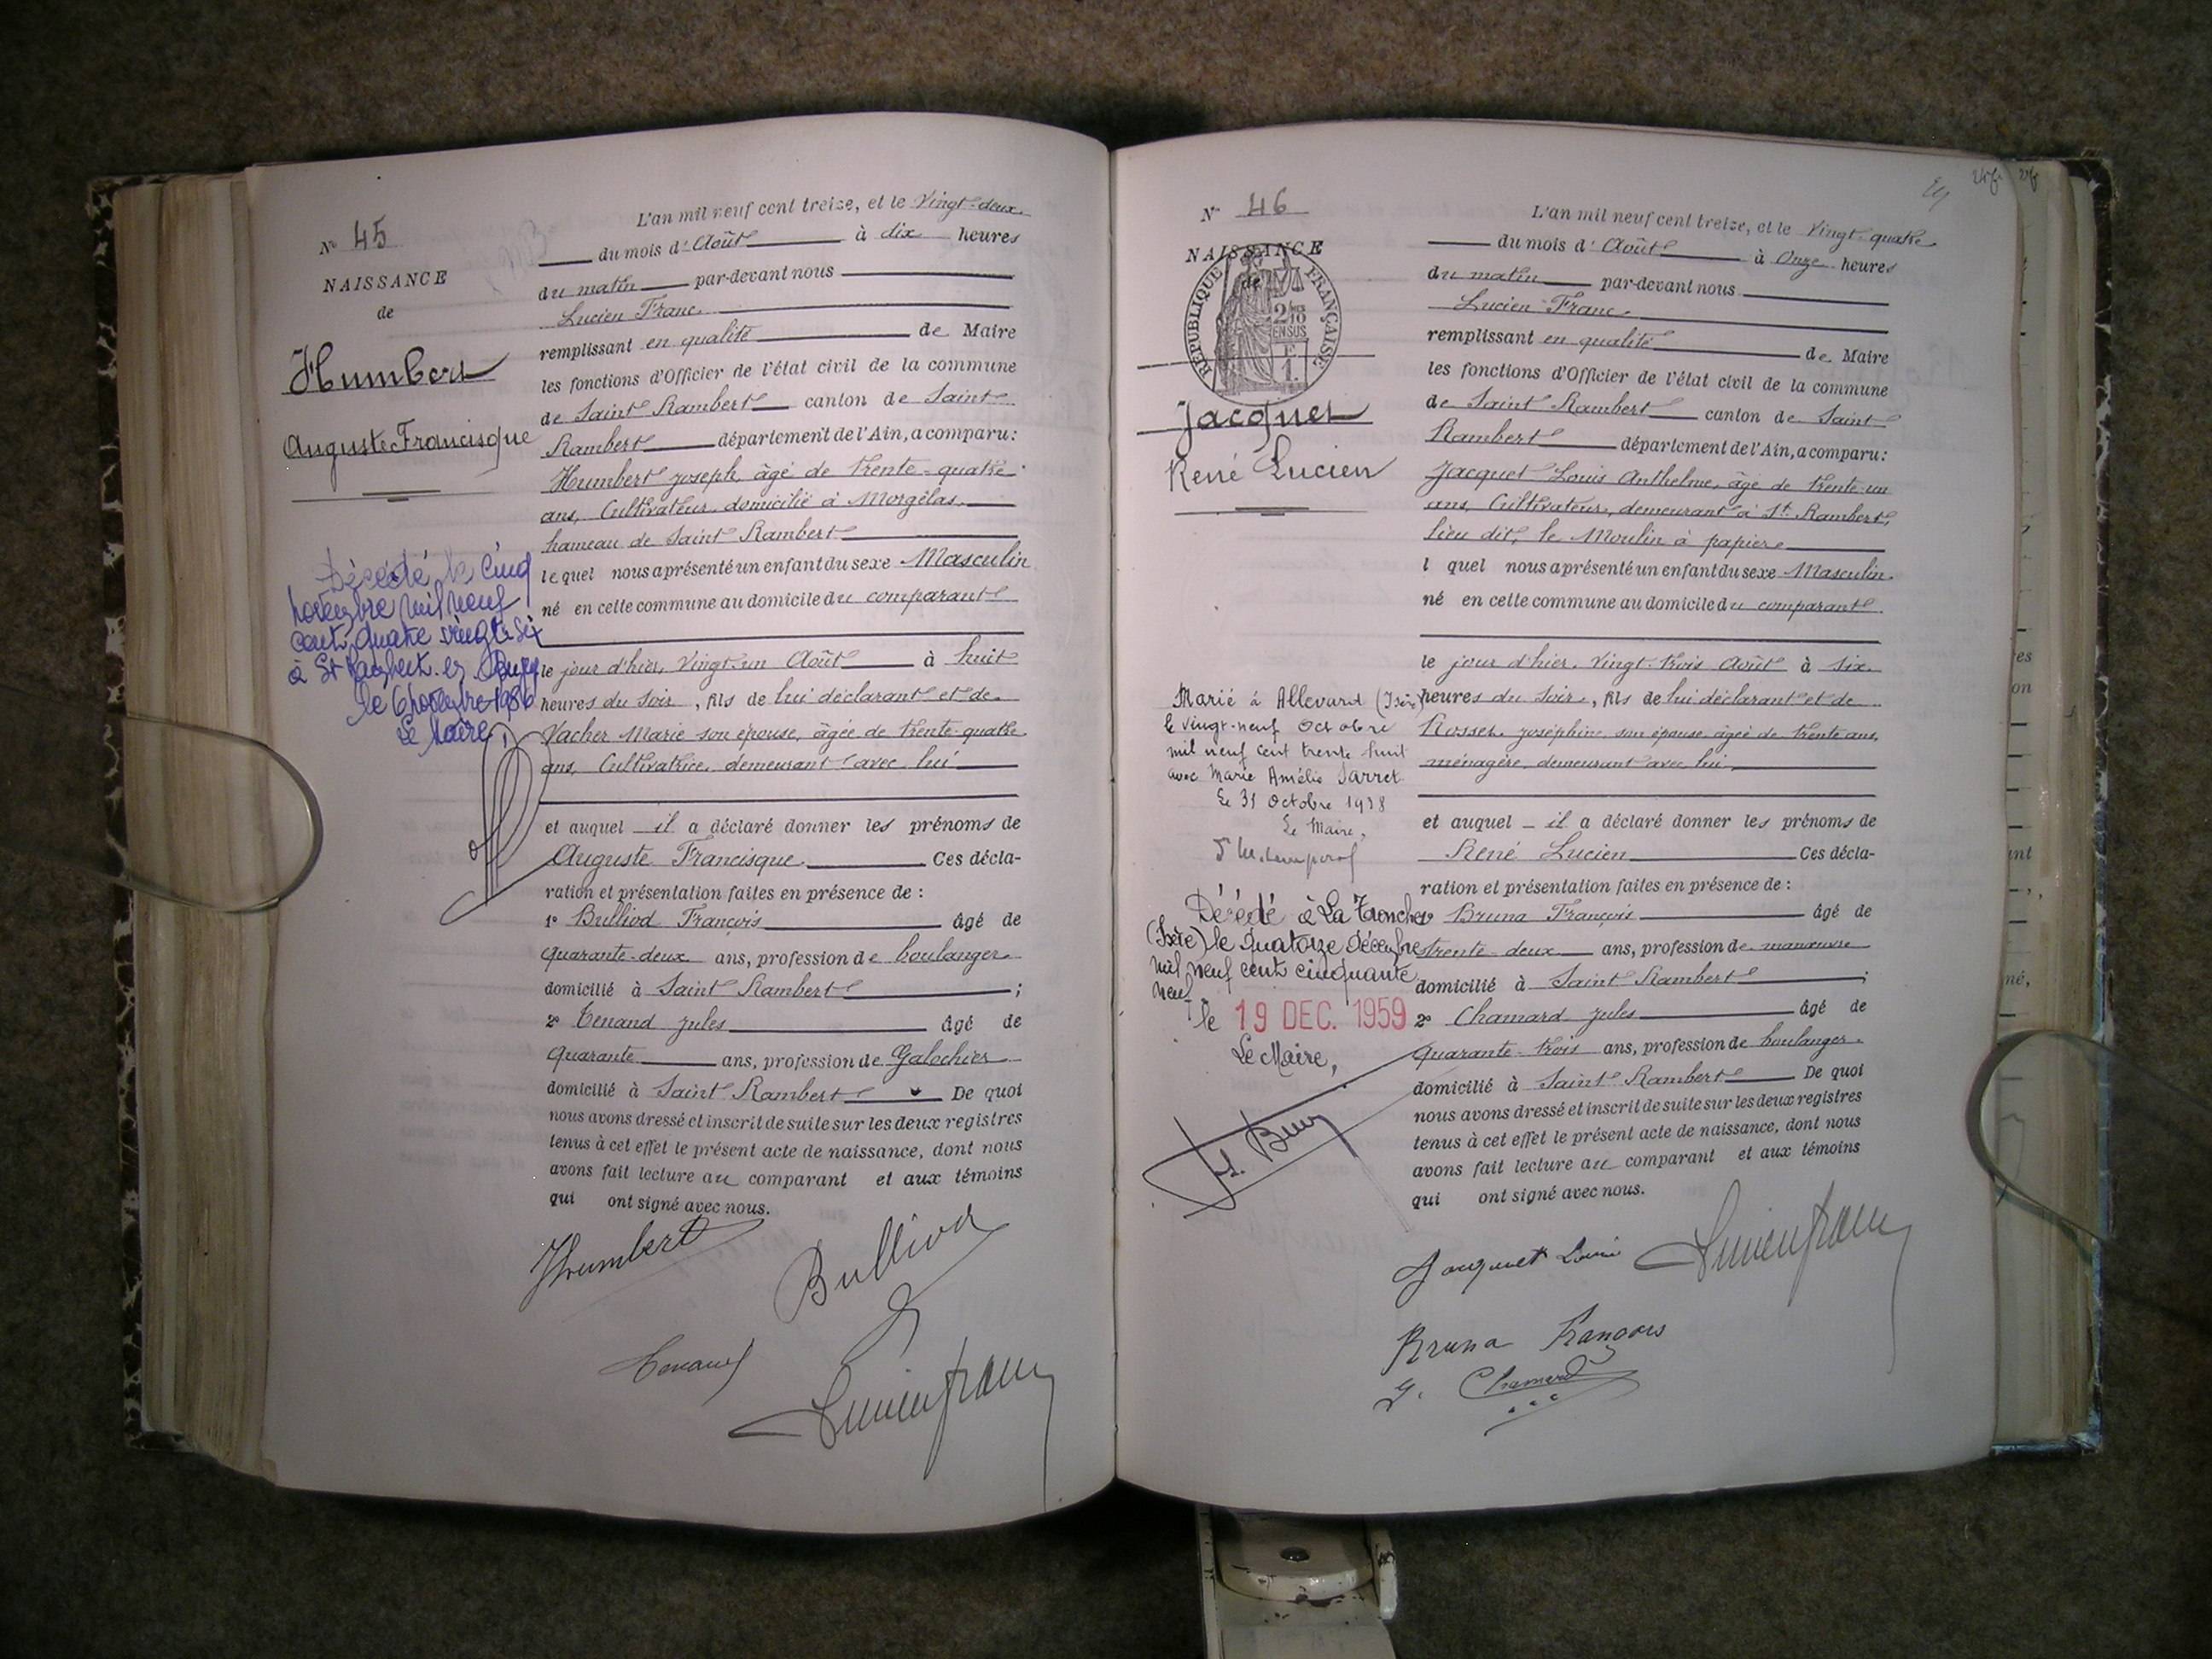 N° 45
NAISSANCE
de
Humbert
Auguste Francisque
Décédé le cinq
novembre mil neuf
cent quatre vingt six
à St Rambert en Bugey
le 6 novembre 1986
Le Maire,
L'an mil neuf cent treize, et le Vingt-deux
du mois d'Août à dix heures
du matin par-devant nous
Lucien Franc
remplissant en qualité de Maire
les fonctions d'Officier de l'état civil de la commune
de Saint Rambert canton de Saint
Rambert département de l'Ain, a comparu :
Humbert Joseph, âgé de trente-quatre
ans, Cultivateur, domicilié à Morgelas,
hameau de Saint Rambert
lequel nous a présenté un enfant du sexe Masculin
né en cette commune au domicile du comparant
le jour d'hier, Vingt-un Août à huit
heures du soir, fils de lui déclarant et de
Vacher Marie son épouse, âgée de trente-quatre
ans, Cultivatrice, demeurant avec lui
et auquel il a déclaré donner les prénoms de
Auguste Francisque Ces décla-
ration et présentation faites en présence de :
1° Bulliod François âgé de
quarante-deux ans, profession de boulanger
domicilié à Saint Rambert ;
2° Tenand Jules âgé de
quarante ans, profession de Galochier
domicilié à Saint Rambert De quoi
nous avons dressé et inscrit de suite sur les deux registres
tenus à cet effet le présent acte de naissance, dont nous
avons fait lecture au comparant et aux témoins
qui ont signé avec nous.
Humbert Bulliod
Tenand
Lucien Franc
N° 46
NAISSANCE
de
RÉPUBLIQUE FRANÇAISE
EN SUS
Jacquet
René Lucien
Marié à Allevard (Isère)
le vingt-neuf Octobre
mil neuf cent trente huit
avec Marie Amélie Jarret
Le 31 Octobre 1938
Le Maire,
Décédé à La Tronche
(Isère) le quatorze décembre
mil neuf cent cinquante
neuf
le 19 DEC. 1959
Le Maire,
L'an mil neuf cent treize, et le Vingt-quatre
du mois d'Août à Onze heures
du matin par-devant nous
Lucien Franc
remplissant en qualité de Maire
les fonctions d'Officier de l'état civil de la commune
de Saint Rambert canton de Saint
Rambert département de l'Ain, a comparu :
Jacquet Louis Anthelme, âgé de trente-un
ans, Cultivateur, demeurant à St Rambert,
lieu dit, le Moulin à papier
l quel nous a présenté un enfant du sexe Masculin
né en cette commune au domicile du comparant
le jour d'hier, Vingt-trois Août à six
heures du soir, fils de lui déclarant et de
Rosset Joséphine son épouse âgée de trente ans,
ménagère, demeurant avec lui
et auquel il a déclaré donner les prénoms de
René Lucien Ces décla-
ration et présentation faites en présence de :
1° Bruna François âgé de
trente-deux ans, profession de manœuvre
domicilié à Saint Rambert ;
2° Chamard Jules âgé de
quarante-trois ans, profession de boulanger
domicilié à Saint Rambert De quoi
nous avons dressé et inscrit de suite sur les deux registres
tenus à cet effet le présent acte de naissance, dont nous
avons fait lecture au comparant et aux témoins
qui ont signé avec nous.
Jacquet Louis Lucien Franc
Bruna François
J. Chamard